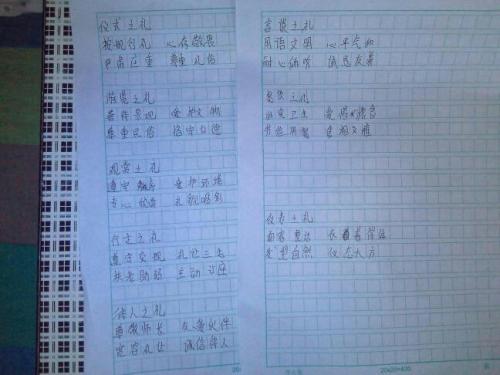 仪式之礼
按规行礼 心存敬畏
严肃庄重 尊重礼俗
游览之礼
善待景观 爱护文物
尊重民俗 恪守公德
观赏之礼
遵守秩序 爱护环境
专心欣赏 礼貌喝彩
行走之礼
遵守交规 礼让三先
扶老助弱 主动让座
待人之礼
尊敬师长 友善伙伴
宽容礼让 诚信待人
言谈之礼
用语文明 心平气和
耐心倾听 诚恳友善
餐饮之礼
讲究卫生 爱惜粮食
节俭用餐 食相文雅
仪表之礼
面容整洁 衣着得体
发型自然 仪态大方
20×20=400